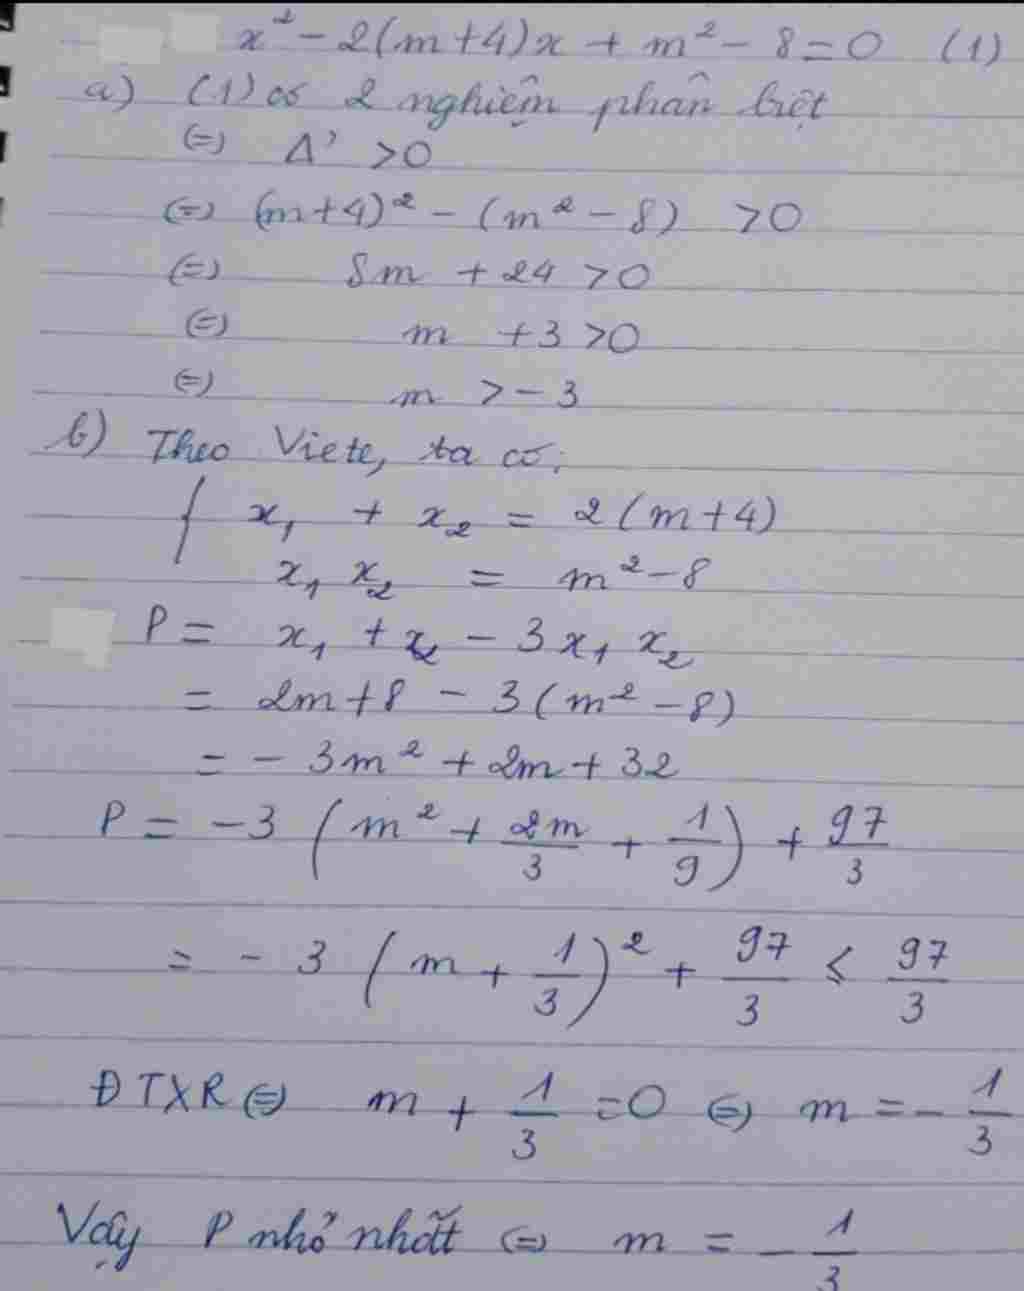 x² - 2(m+4)x + m² - 8 = 0 (1)
a) (1) có 2 nghiệm phân biệt
(=) Δ' > 0
(=) (m+4)² - (m² - 8) > 0
(=) 8m + 24 > 0
(=) m + 3 > 0
(=) m > -3
b) Theo Viete, ta có:
{ x₁ + x₂ = 2(m+4)
x₁ x₂ = m² - 8
P = x₁ + x₂ - 3x₁ x₂
= 2m + 8 - 3(m² - 8)
= - 3m² + 2m + 32
P = -3 (m² + 2m/3 + 1/9) + 97/3
= - 3 (m + 1/3)² + 97/3 ≤ 97/3
ĐTXR (=) m + 1/3 = 0 (=) m = - 1/3
Vậy P nhỏ nhất (=) m = - 1/3